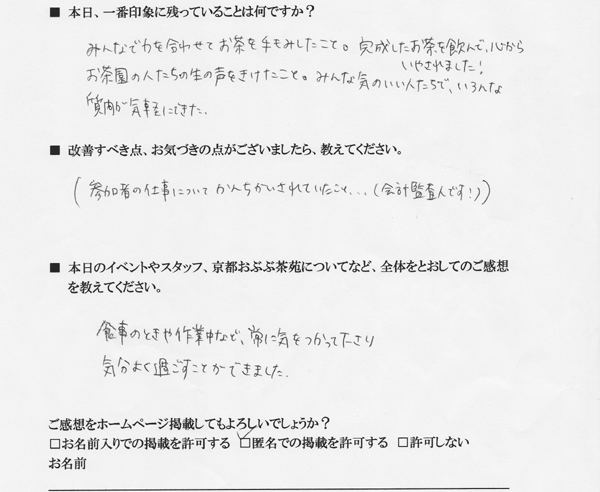 ■ 本日、一番印象に残っていることは何ですか？
みんなで力を合わせてお茶を手もみしたこと。完成したお茶を飲んで、心から
いやされました！
お茶園の人たちの生の声をきけたこと。みんな気のいい人たちで、いろんな
質問が気軽にできた。
■ 改善すべき点、お気づきの点がございましたら、教えてください。
(参加者の仕事についてかんちがいされていたこと...(会計監査人です！))
■ 本日のイベントやスタッフ、京都おぶぶ茶苑についてなど、全体をとおしてのご感想
を教えてください。
食事のときや作業中など、常に気をつかって下さり
気分よく過ごすことができました。
ご感想をホームページ掲載してもよろしいでしょうか？
□お名前入りでの掲載を許可する □匿名での掲載を許可する □許可しない
お名前